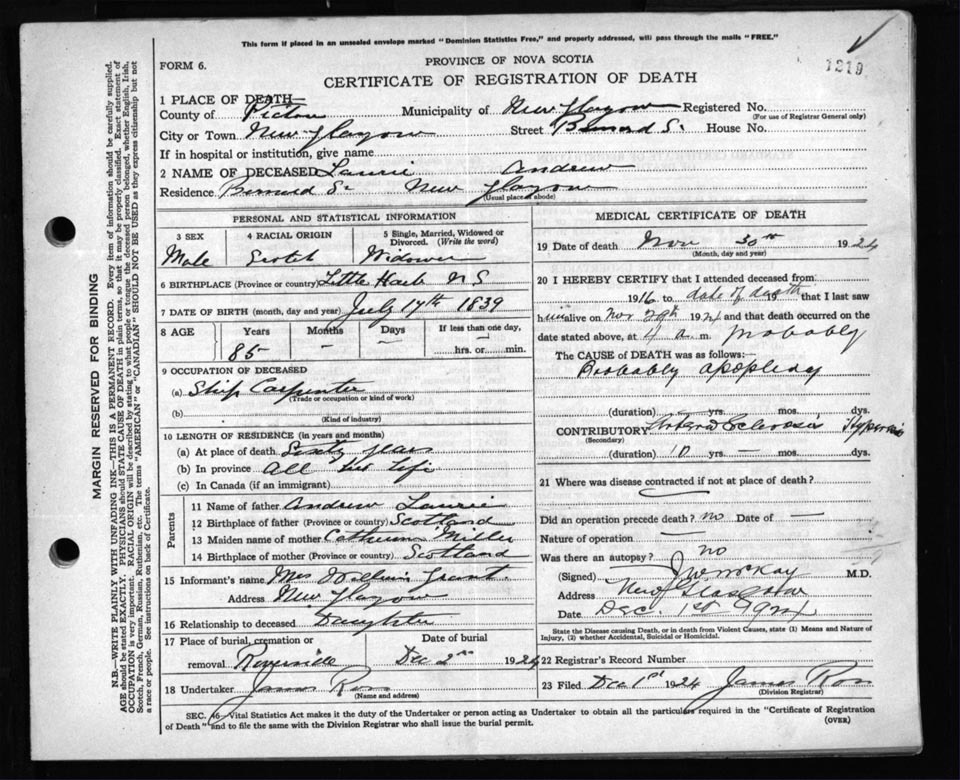 This form if placed in an unsealed envelope marked "Dominion Statistics Free," and properly addressed, will pass through the mails "FREE."
1219
FORM 6.
PROVINCE OF NOVA SCOTIA
CERTIFICATE OF REGISTRATION OF DEATH
1 PLACE OF DEATH—
County of Pictou Municipality of New Glasgow Registered No.
(For use of Registrar General only)
City or Town New Glasgow Street Bernard St. House No.
If in hospital or institution, give name
2 NAME OF DECEASED Laurie Andrew
Residence Bernard St New Glasgow
(Usual place of abode)
PERSONAL AND STATISTICAL INFORMATION
3 SEX
Male
4 RACIAL ORIGIN
Scotch
5 Single, Married, Widowed or Divorced. (Write the word)
Widower
6 BIRTHPLACE (Province or country) Little Harb NS
7 DATE OF BIRTH (month, day and year) July 17th 1839
8 AGE Years Months Days If less than one day,
85 — — hrs. or min.
9 OCCUPATION OF DECEASED
(a) Ship Carpenter
(Trade or occupation or kind of work)
(b)
(Kind of industry)
10 LENGTH OF RESIDENCE (in years and months)
(a) At place of death Sixty years
(b) In province All his life
(c) In Canada (if an immigrant)
Parents
11 Name of father Andrew Laurie
12 Birthplace of father (Province or country) Scotland
13 Maiden name of mother Catherine Miller
14 Birthplace of mother (Province or country) Scotland
15 Informant's name Mrs William Grant.
Address New Glasgow
16 Relationship to deceased Daughter
17 Place of burial, cremation or removal Riverside
Date of burial Dec 2nd 1924
18 Undertaker James Ross
(Name and address)
MEDICAL CERTIFICATE OF DEATH
19 Date of death Nov 30th 1924
(Month, day and year)
20 I HEREBY CERTIFY that I attended deceased from
1916 to date of death that I last saw
him alive on Nov 29th 1924 and that death occurred on
date stated above, at 4 a.m. probably
The CAUSE OF DEATH was as follows:—
Probably apoplexy
(duration) — yrs. — mos. dys.
CONTRIBUTORY Arterio Sclerosis
(Secondary)
(duration) 10 yrs. — mos. dys.
21 Where was disease contracted if not at place of death?
Did an operation precede death? no Date of —
Nature of operation —
Was there an autopsy? no
(Signed) J W McKay M.D.
Address New Glasgow
Date Dec. 1st 1924
State the Disease causing Death, or in death from Violent Causes, state (1) Means and Nature of Injury, (2) whether Accidental, Suicidal or Homicidal.
22 Registrar's Record Number
23 Filed Dec 1st 1924 James Ross
(Division Registrar)
SEC. 46—Vital Statistics Act makes it the duty of the Undertaker or person acting as Undertaker to obtain all the particulars required in the "Certificate of Registration
of Death" and to file the same with the Division Registrar who shall issue the burial permit.
(OVER)
MARGIN RESERVED FOR BINDING
N.B.—WRITE PLAINLY WITH UNFADING INK—THIS IS A PERMANENT RECORD. Every item of information should be carefully supplied.
AGE should be stated EXACTLY. PHYSICIANS should STATE CAUSE OF DEATH in plain terms, so that it may be properly classified. Exact statement of
OCCUPATION is very important. RACIAL ORIGIN will be described by stating to what people or tongue the deceased person belonged, whether English, Irish,
Scotch, French, German, Russian, Ruthenian, etc. The terms "AMERICAN" or "CANADIAN" SHOULD NOT BE USED as they express citizenship but not
a race or people. See instructions on back of Certificate.